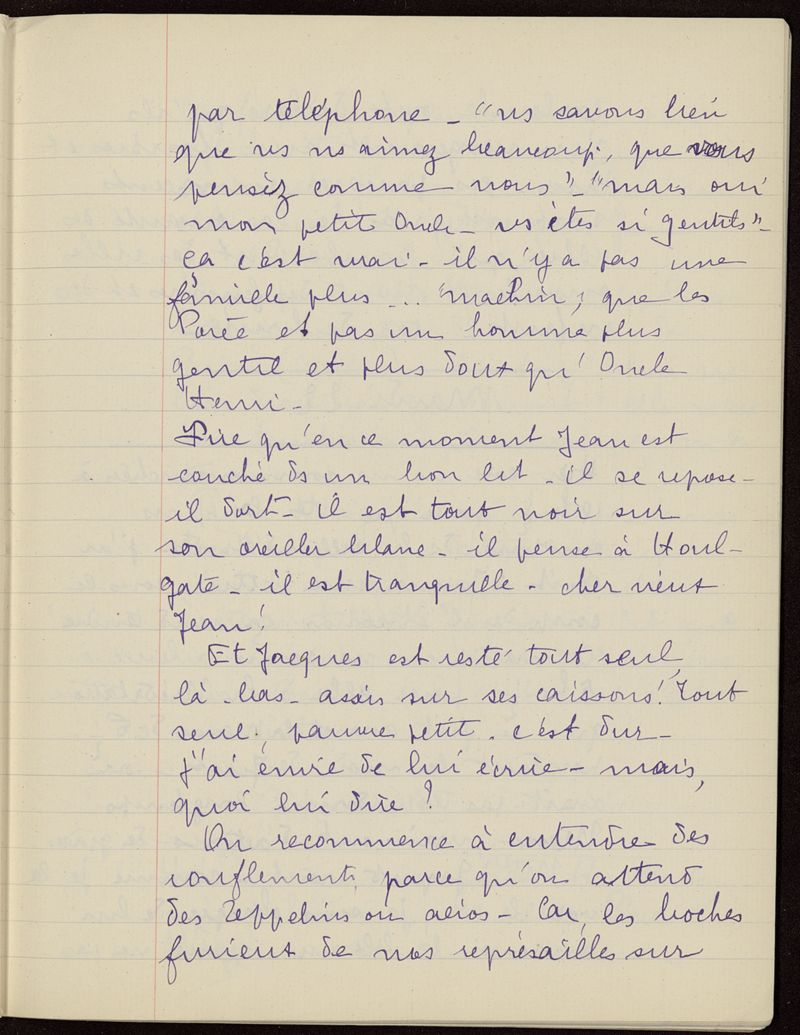 par téléphone - "ns savons bien
que vs ns aimez beaucoup, que vous
pensiez comme nous" - "mais oui
mon petit Oncle - vs êtes si gentils" -
ça c'est vrai - il n'y a pas une
famille plus ... "machin", que les
Porée et pas un homme plus
gentil et plus doux qu'Oncle
Henri -
Dire qu'en ce moment Jean est
couché ds un bon lit - il se repose -
il dort - il est tout noir sur
son oreiller blanc - il pense à Houl-
gate - il est tranquille - cher vieux
Jean!
Et Jacques est resté tout seul,
là-bas - assis sur ses caissons! Tout
seul, pauvre petit. c'est dur -
J'ai envie de lui écrire - mais,
quoi lui dire?
On recommence à entendre des
ronflements, parce qu'on attend
des Zeppelins ou aéros - Car, les boches
furient de nos représailles sur